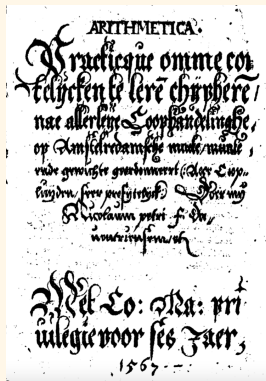 ARITHMETICA.
Practicque omme cor
telycken te lerē chypherē/
nae allerleye Coophandelinghe,
op Amstelredamsche mate, munte,
ende gewichte geordonneert (: Allen Coop-
luyden, seer profytelyck:) Door my
Nicolaum petri F. Da-
uentriensem, etc
Met Co: Ma: pri
uilegie voor ses Jaer,
1567